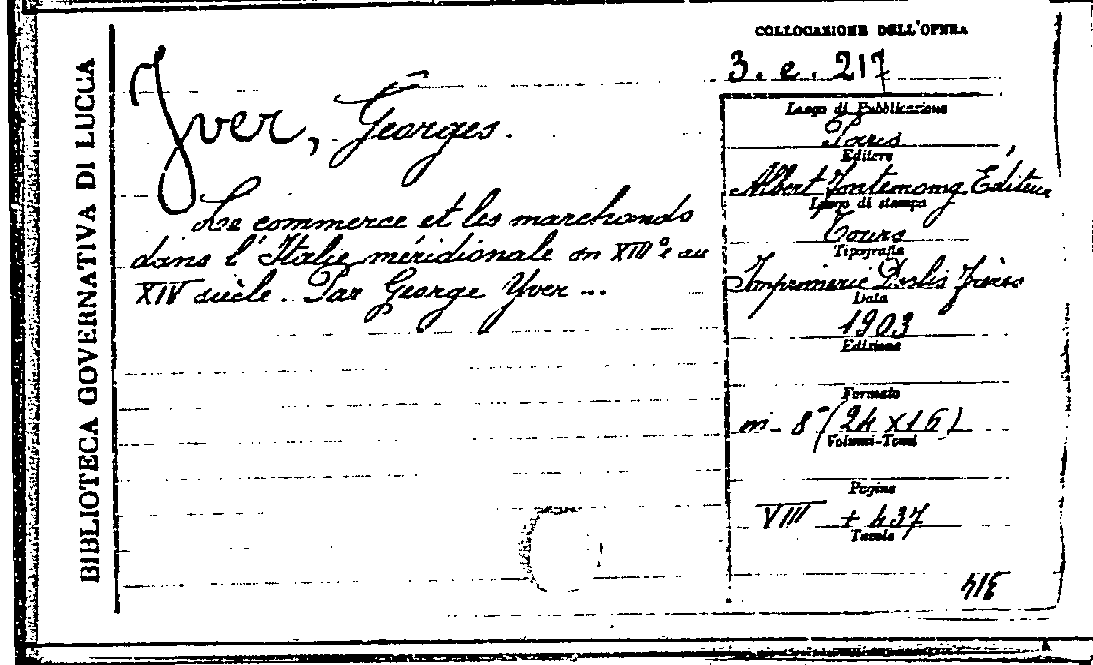 BIBLIOTECA GOVERNATIVA DI LUCCA
Yver, Georges.
Le commerce et les marchands
dans l'Italie méridionale au XIII e au
XIV siècle. Par George Yver ...
COLLOCAZIONE DELL'OPERA
3. e. 217
Luogo di Pubblicazione
Paris
Editore
Albert Fontemomg Éditeur
Luogo di stampa
Tours
Tipografia
Imprimerie Deslis Frères
Data
1903
Edizione
Formato
in - 8° (24 X 16)
Volumi-Tomi
Pagine
VIII + 437
Tavole